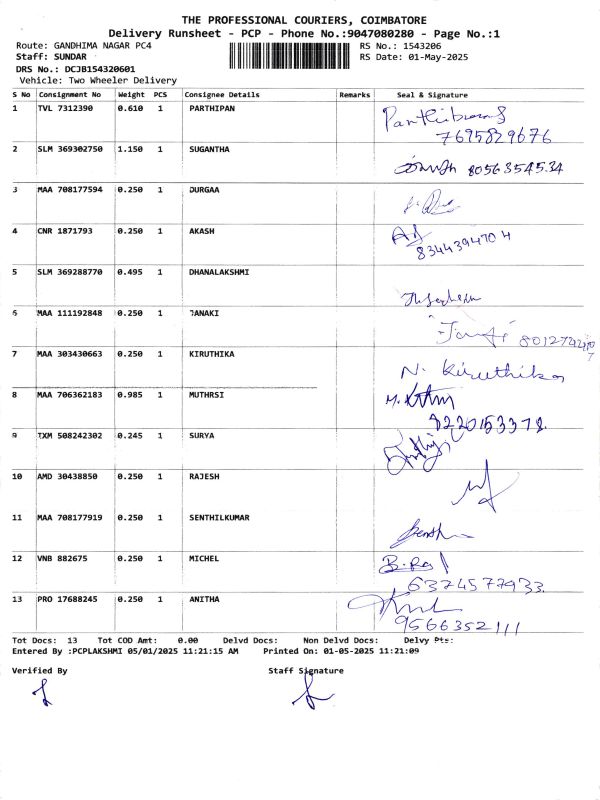 THE PROFESSIONAL COURIERS, COIMBATORE
Delivery Runsheet - PCP - Phone No.:9047080280 - Page No.:1
Route: GANDHIMA NAGAR PC4 RS No.: 1543206
Staff: SUNDAR RS Date: 01-May-2025
DRS No.: DCJB154320601
Vehicle: Two Wheeler Delivery
S No Consignment No Weight PCS Consignee Details Remarks Seal & Signature
1 TVL 7312390 0.610 1 PARTHIPAN
7695829676
2 SLM 369302750 1.150 1 SUGANTHA
8056354534
3 MAA 708177594 0.250 1 DURGAA
4 CNR 1871793 0.250 1 AKASH
8344394704
5 SLM 369288770 0.495 1 DHANALAKSHMI
6 MAA 111192848 0.250 1 JANAKI
7 MAA 303430663 0.250 1 KIRUTHIKA
N. Kiruthika
8 MAA 706362183 0.985 1 MUTHRSI
8220153378
9 TXM 508242302 0.245 1 SURYA
10 AMD 30438850 0.250 1 RAJESH
11 MAA 708177919 0.250 1 SENTHILKUMAR
12 VNB 882675 0.250 1 MICHEL
6374577933
13 PRO 17688245 0.250 1 ANITHA
9566352111
Tot Docs: 13 Tot COD Amt: 0.00 Delvd Docs: Non Delvd Docs: Delvy Pts:
Entered By :PCPLAKSHMI 05/01/2025 11:21:15 AM Printed On: 01-05-2025 11:21:09
Verified By Staff Signature